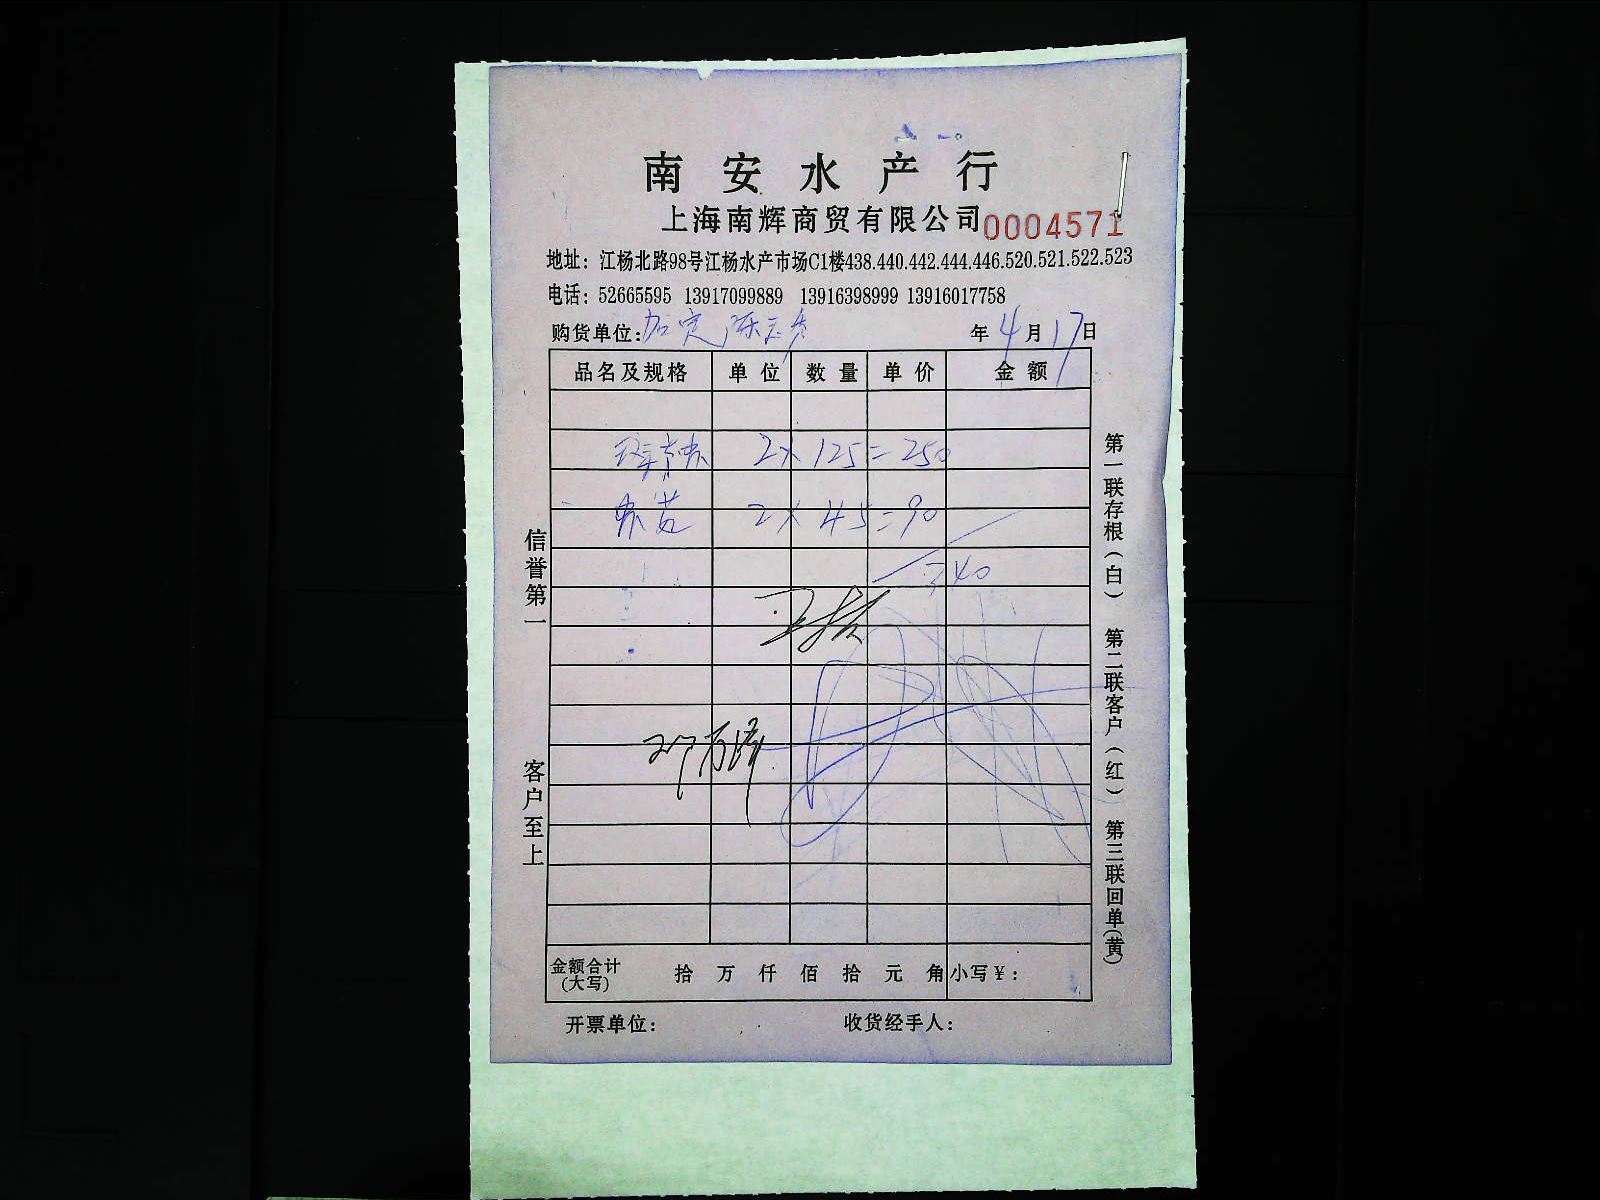 南安水产行
上海南辉商贸有限公司 0004571
地址：江杨北路98号江杨水产市场C1楼438.440.442.444.446.520.521.522.523
电话：52665595 13917099889 13916398999 13916017758
购货单位： 年 4 月 17 日
品名及规格 单位 数量 单价 金额
2 × 125 = 250
2 × 45 = 90
340
金额合计(大写) 拾 万 仟 佰 拾 元 角 小写￥：
开票单位： 收货经手人：
信誉第一 客户至上
第一联存根（白） 第二联客户（红） 第三联回单(黄)